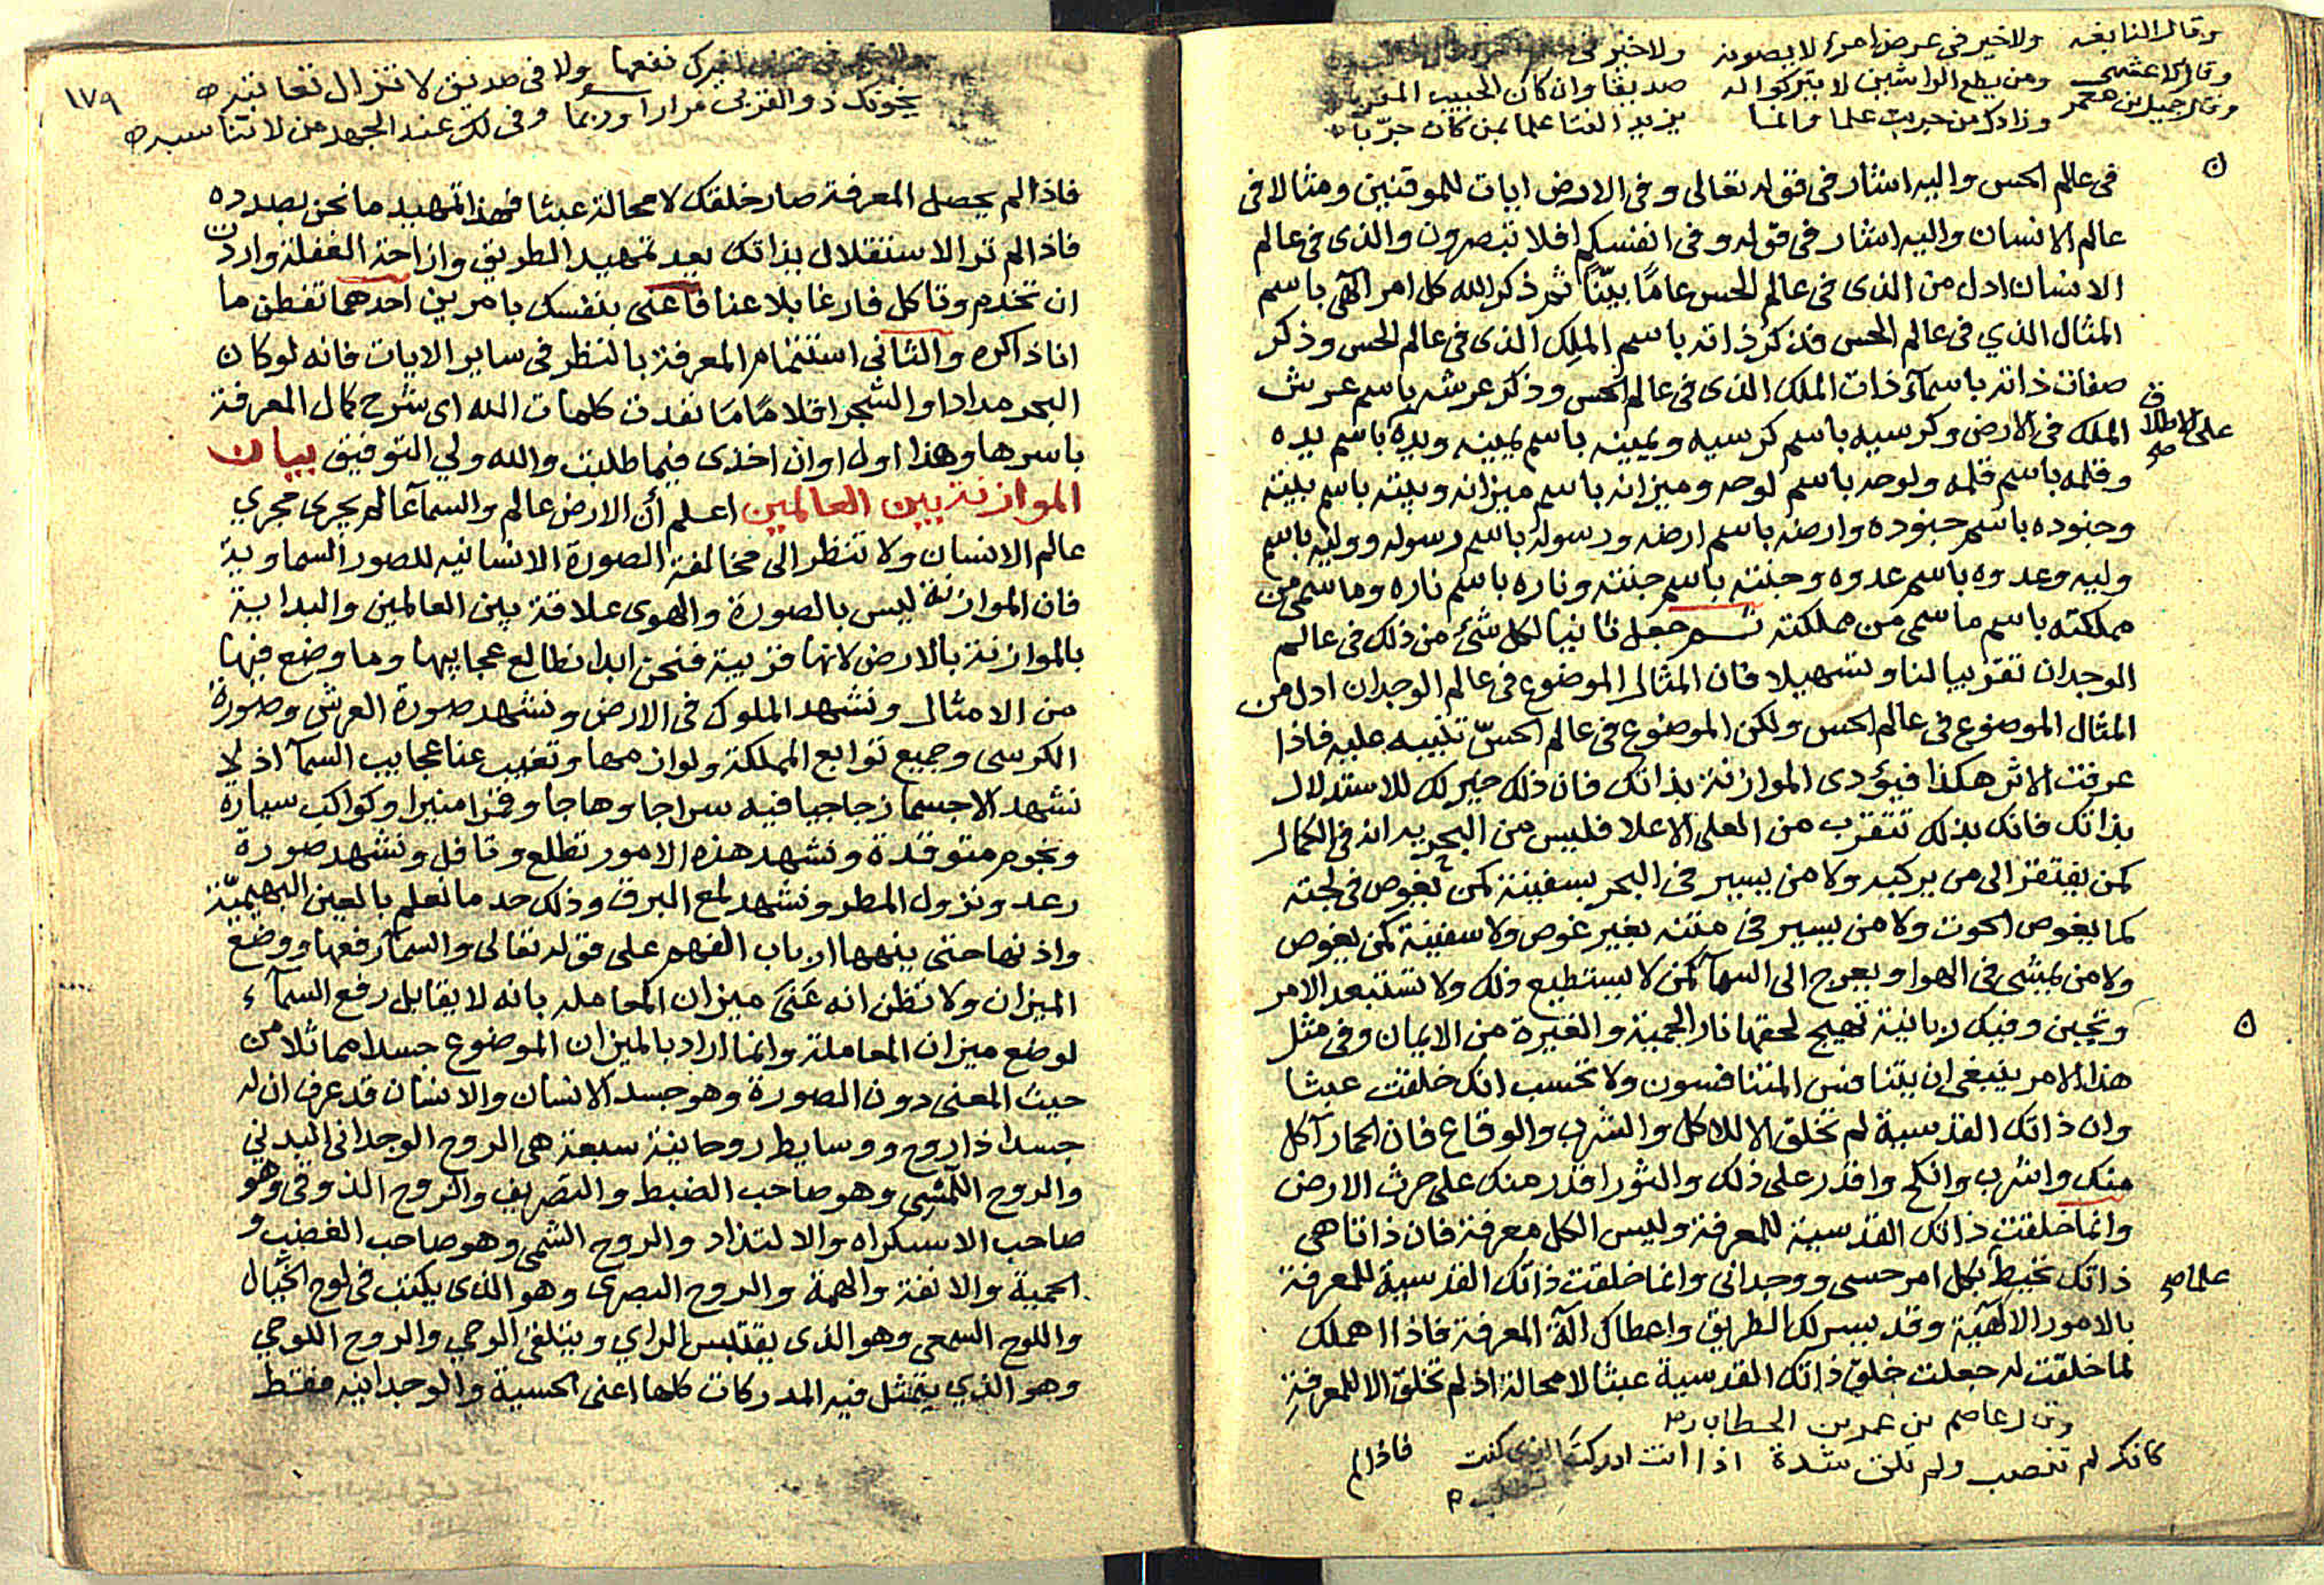 وقال النابغه ولا خير في عرض امرء لا يصونه ولا خير في
وقال الاعشى ومن يطع الواشين لا يتركوا له صديقا وان كان الحبيب المقربا
وقال جميل بن معمر وزادك من جربت علما وانما يزيد الفتا علما بمن كان جرّبا
في عالم الحس واليه اشار في قوله تعالى وفي الارض ايات للموقنين ومثالا في
عالم الانسان واليه اشار في قوله وفي انفسكم افلا تبصرون والذي في عالم
الانسان ادل من الذي في عالم الحس عامًا بيّنًا ثم ذكر الله كل امر الهي باسم
المثال الذي في عالم الحس فذكر ذاته باسم المَلِك الذي في عالم الحس وذكر
صفات ذاته باسماء ذات الملك الذي في عالم الحس وذكر عرشه باسم عرش
الملك في الارض وكرسيه باسم كرسيه ويمينه باسم يمينه ويده باسم يده
على الاطلاق صح
وقلمه باسم قلمه ولوحه باسم لوحه وميزانه باسم ميزانه وبيته باسم بيته
وجنوده باسم جنوده وارضه باسم ارضه ورسوله باسم رسوله ووليه باسم
وليه وعدوه باسم عدوه وجنته باسم جنته وناره باسم ناره وما سمي من
مملكته باسم ما سمي من مملكته ثم جعل ثانيا لكل شئ من ذلك في عالم
الوجدان تقريبا لنا وتسهيلا فان المثال الموضوع في عالم الوجدان ادل من
المثال الموضوع في عالم الحس ولكن الموضوع في عالم الحسّ تنبيه عليه فاذا
عرفت الاثر هكذا فيؤدى الموازنة بذاتك فان ذلك خير لك للاستدلال
بذاتك فانك بذلك تتقرب من المعلى الاعلا فليس من البحر يراد في الكمال
كمن يفتقر الى من يركبه ولا من يسير في البحر بسفينة كمن يغوص في لجته
كما يغوص الحوت ولا من يسير في متنه بغير غوص ولا سفينة كمن يغوص
ولا من يمشي في الهوا ويعرج الى السماء كمن لا يستطيع ذلك ولا تستبعد الامر
وتجبن وفيك ربانية تهيج لحقها نار الحمية والغيرة من الايمان وفي مثل
هذا الامر ينبغي ان يتنافس المتنافسون ولا تحسب انك خلقت عبثا
وان ذاتك القدسية لم تخلق الا للاكل والشرب والوقاع فان الحمار آكل
منك واشرب وانكح واقدر على ذلك والثور اقدر منك على حرث الارض
وانما خلقت ذاتك القدسية للمعرفة وليس الكل معرفة فان ذاتا هي
ذاتك تحيط بكل امر حسي ووجداني وانما خلقت ذاتك القدسية للمعرفة
علما صح
بالامور الالهية وقد يسر لك الطريق واعطاك الة المعرفة فاذا اهملك
لما خلقت له جعلت خلق ذاتك القدسية عبثا لا محالة اذ لم تخلق الا للمعرفة
وقال عاصم بن عمر بن الخطاب رض
كانك لم تنصب ولم تلق شدة اذا انت ادركت الذي كنت تطلب
فاذا لم
١٧٩
نفعها ولا في صديق لا تزال تعاتبه
يخونك ذو القربى مرارا وربما وفى لك عند الجهد من لا تناسبه
فاذا لم يحصل المعرفة صار خلقك لا محالة عبثا فهذا تمهيد ما نحن بصدده
فاذا لم تر الاستقلال بذاتك بعد تمهيد الطريق وازاحة الغفلة واردت
ان تخدم وتاكل فارغا بلا عنا فاعني بنفسك بامرين احدهما تفطن ما
انا ذاكره والثاني استتمام المعرفة بالنظر في ساير الايات فانه لو كان
البحر مدادا والشجر اقلامًا مَا نفدت كلمات الله اى شرح كمال المعرفة
باسرها وهذا اول اوان اخذى فيما طلبت والله ولي التوفيق بيان
الموازنة بين العالمين اعلم أن الارض عالم والسماء عالم يجري مجري
عالم الانسان ولا تنظر الى مخالفة الصورة الانسانيه للصور السماوية
فان الموازنة ليس بالصورة والهوى علاقة بين العالمين والبداية
بالموازنة بالارض لانها قريبة فنحن ابدا نطالع عجايبها وما وضع فيها
من الامثال ونشهد الملوك في الارض ونشهد صورة العرش وصورة
الكرسي وجميع توابع المملكة ولوازمها وتغيب عنا عجايب السماء اذ لا
نشهد الا جسما زجاجيا فيه سراجا وهاجا وقمرا منيرا وكواكب سيارة
ونجوم متوقدة ونشهد هذه الامور تطلع وتافل ونشهد صورة
رعد ونزول المطر ونشهد لمع البرق وذلك حد ما نعلم بالعين البهيميّة
واذنها حتى ينهها ارباب الفهم على قوله تعالى والسماء رفعها ووضع
الميزان ولا تظن انه عَنَى ميزان المعامله بانه لا يقابل رفع السماء
لوضع ميزان المعاملة وانما اراد بالميزان الموضوع جسدا مماثلا من
حيث المعنى دون الصورة وهو جسد الانسان والانسان قد عرف ان له
جسدا ذا روح ووسايط روحانية سبعة هي الروح الوجداني البدني
والروح اللمسي وهو صاحب الضبط والتصريف والروح الذوقي وهو
صاحب الاسكراه والالتذاد والروح الشمي وهو صاحب الغضب و
الحمية والانفة والهمة والروح البصري وهو الذي يكتب في لوح الخيال
واللوح السمعي وهو الذي يقتبس الراي ويتلقى الوحي والروح اللوحي
وهو الذي يتمثل فيه المدركات كلها اعنى الحسية والوجدانيه فقط